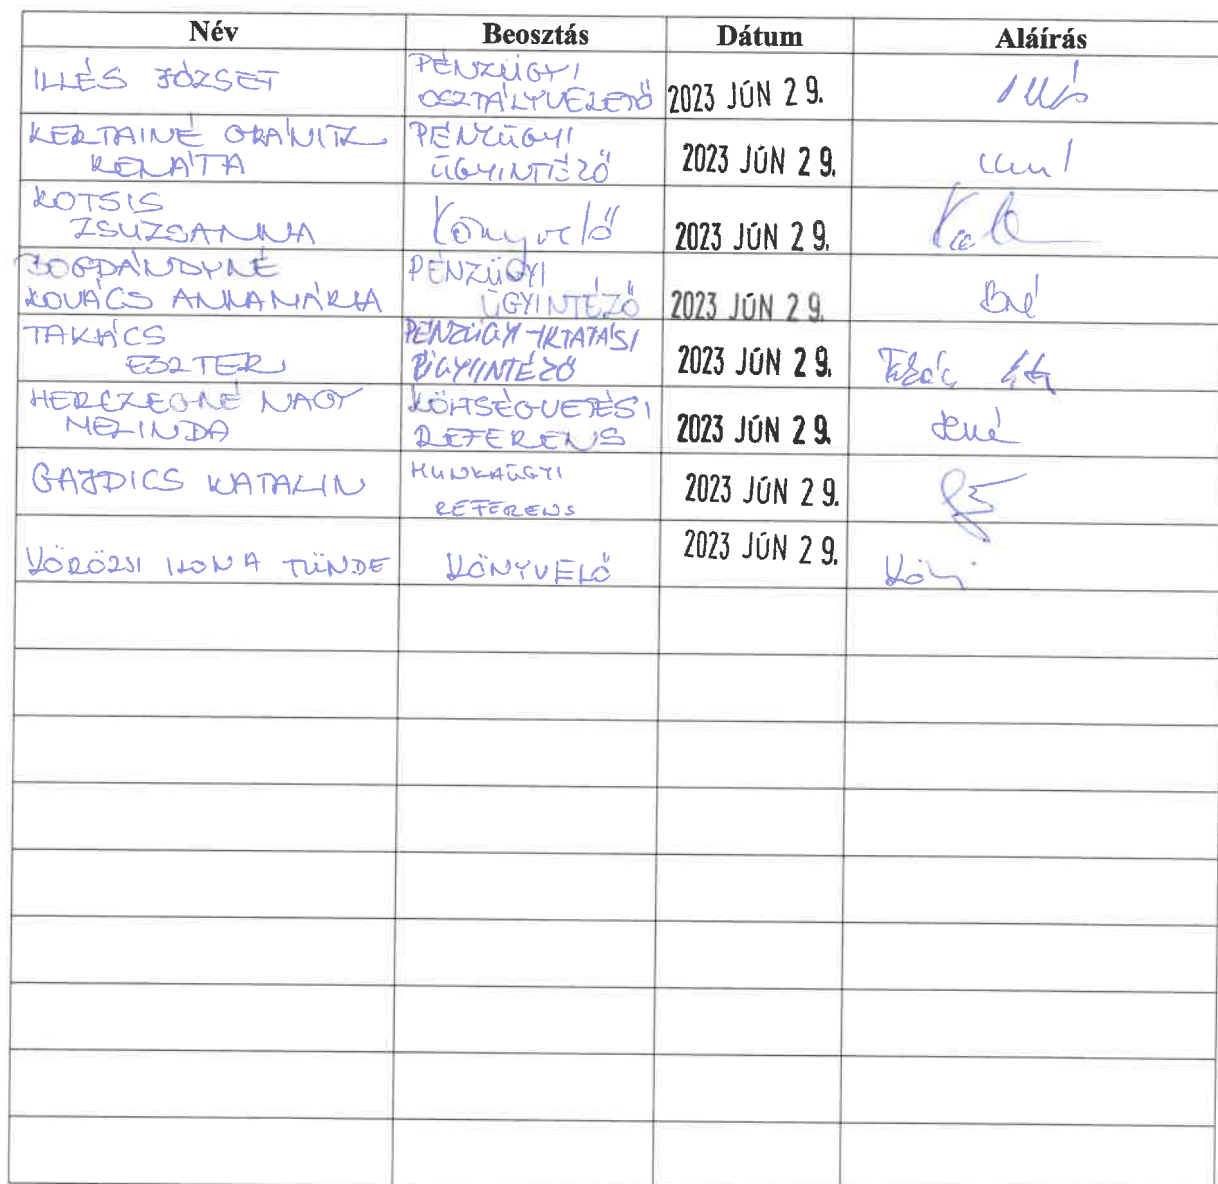 Név Beosztás Dátum Aláírás
ILLÉS JÓZSEF PÉNZÜGYI OSZTÁLYVEZETŐ 2023 JÚN 29.
KERTAINÉ GRÁNITZ RENÁTA PÉNZÜGYI ÜGYINTÉZŐ 2023 JÚN 29.
KOTSIS ZSUZSANNA Könyvelő 2023 JÚN 29.
BOGDÁNDYNÉ KOVÁCS ANNAMÁRIA PÉNZÜGYI ÜGYINTÉZŐ 2023 JÚN 29. Bné
TAKÁCS ESZTER PÉNZÜGYI-IKTATÁSI ÜGYINTÉZŐ 2023 JÚN 29.
HERCZEGNÉ NAGY MELINDA KÖLTSÉGVETÉSI REFERENS 2023 JÚN 29.
GAJDICS KATALIN MUNKAÜGYI REFERENS 2023 JÚN 29.
KÖRÖZSI ILONA TÜNDE KÖNYVELŐ 2023 JÚN 29.